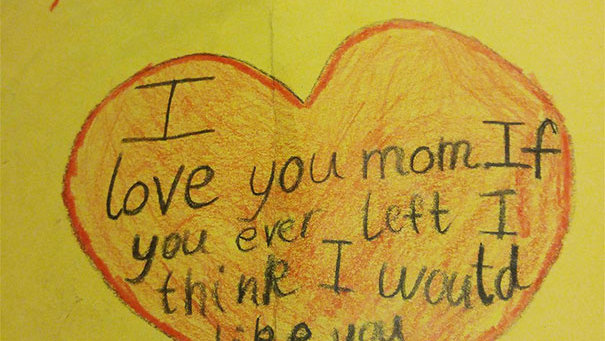 I
love you mom If
you ever left I
think I would
like you